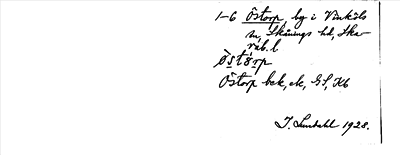 1-6 Östorp, by i Vinköls
sn, Skånings hd, Ska-
rab. l
Östorp bek, ek, GS, Kb
J. Lundahl 1928.